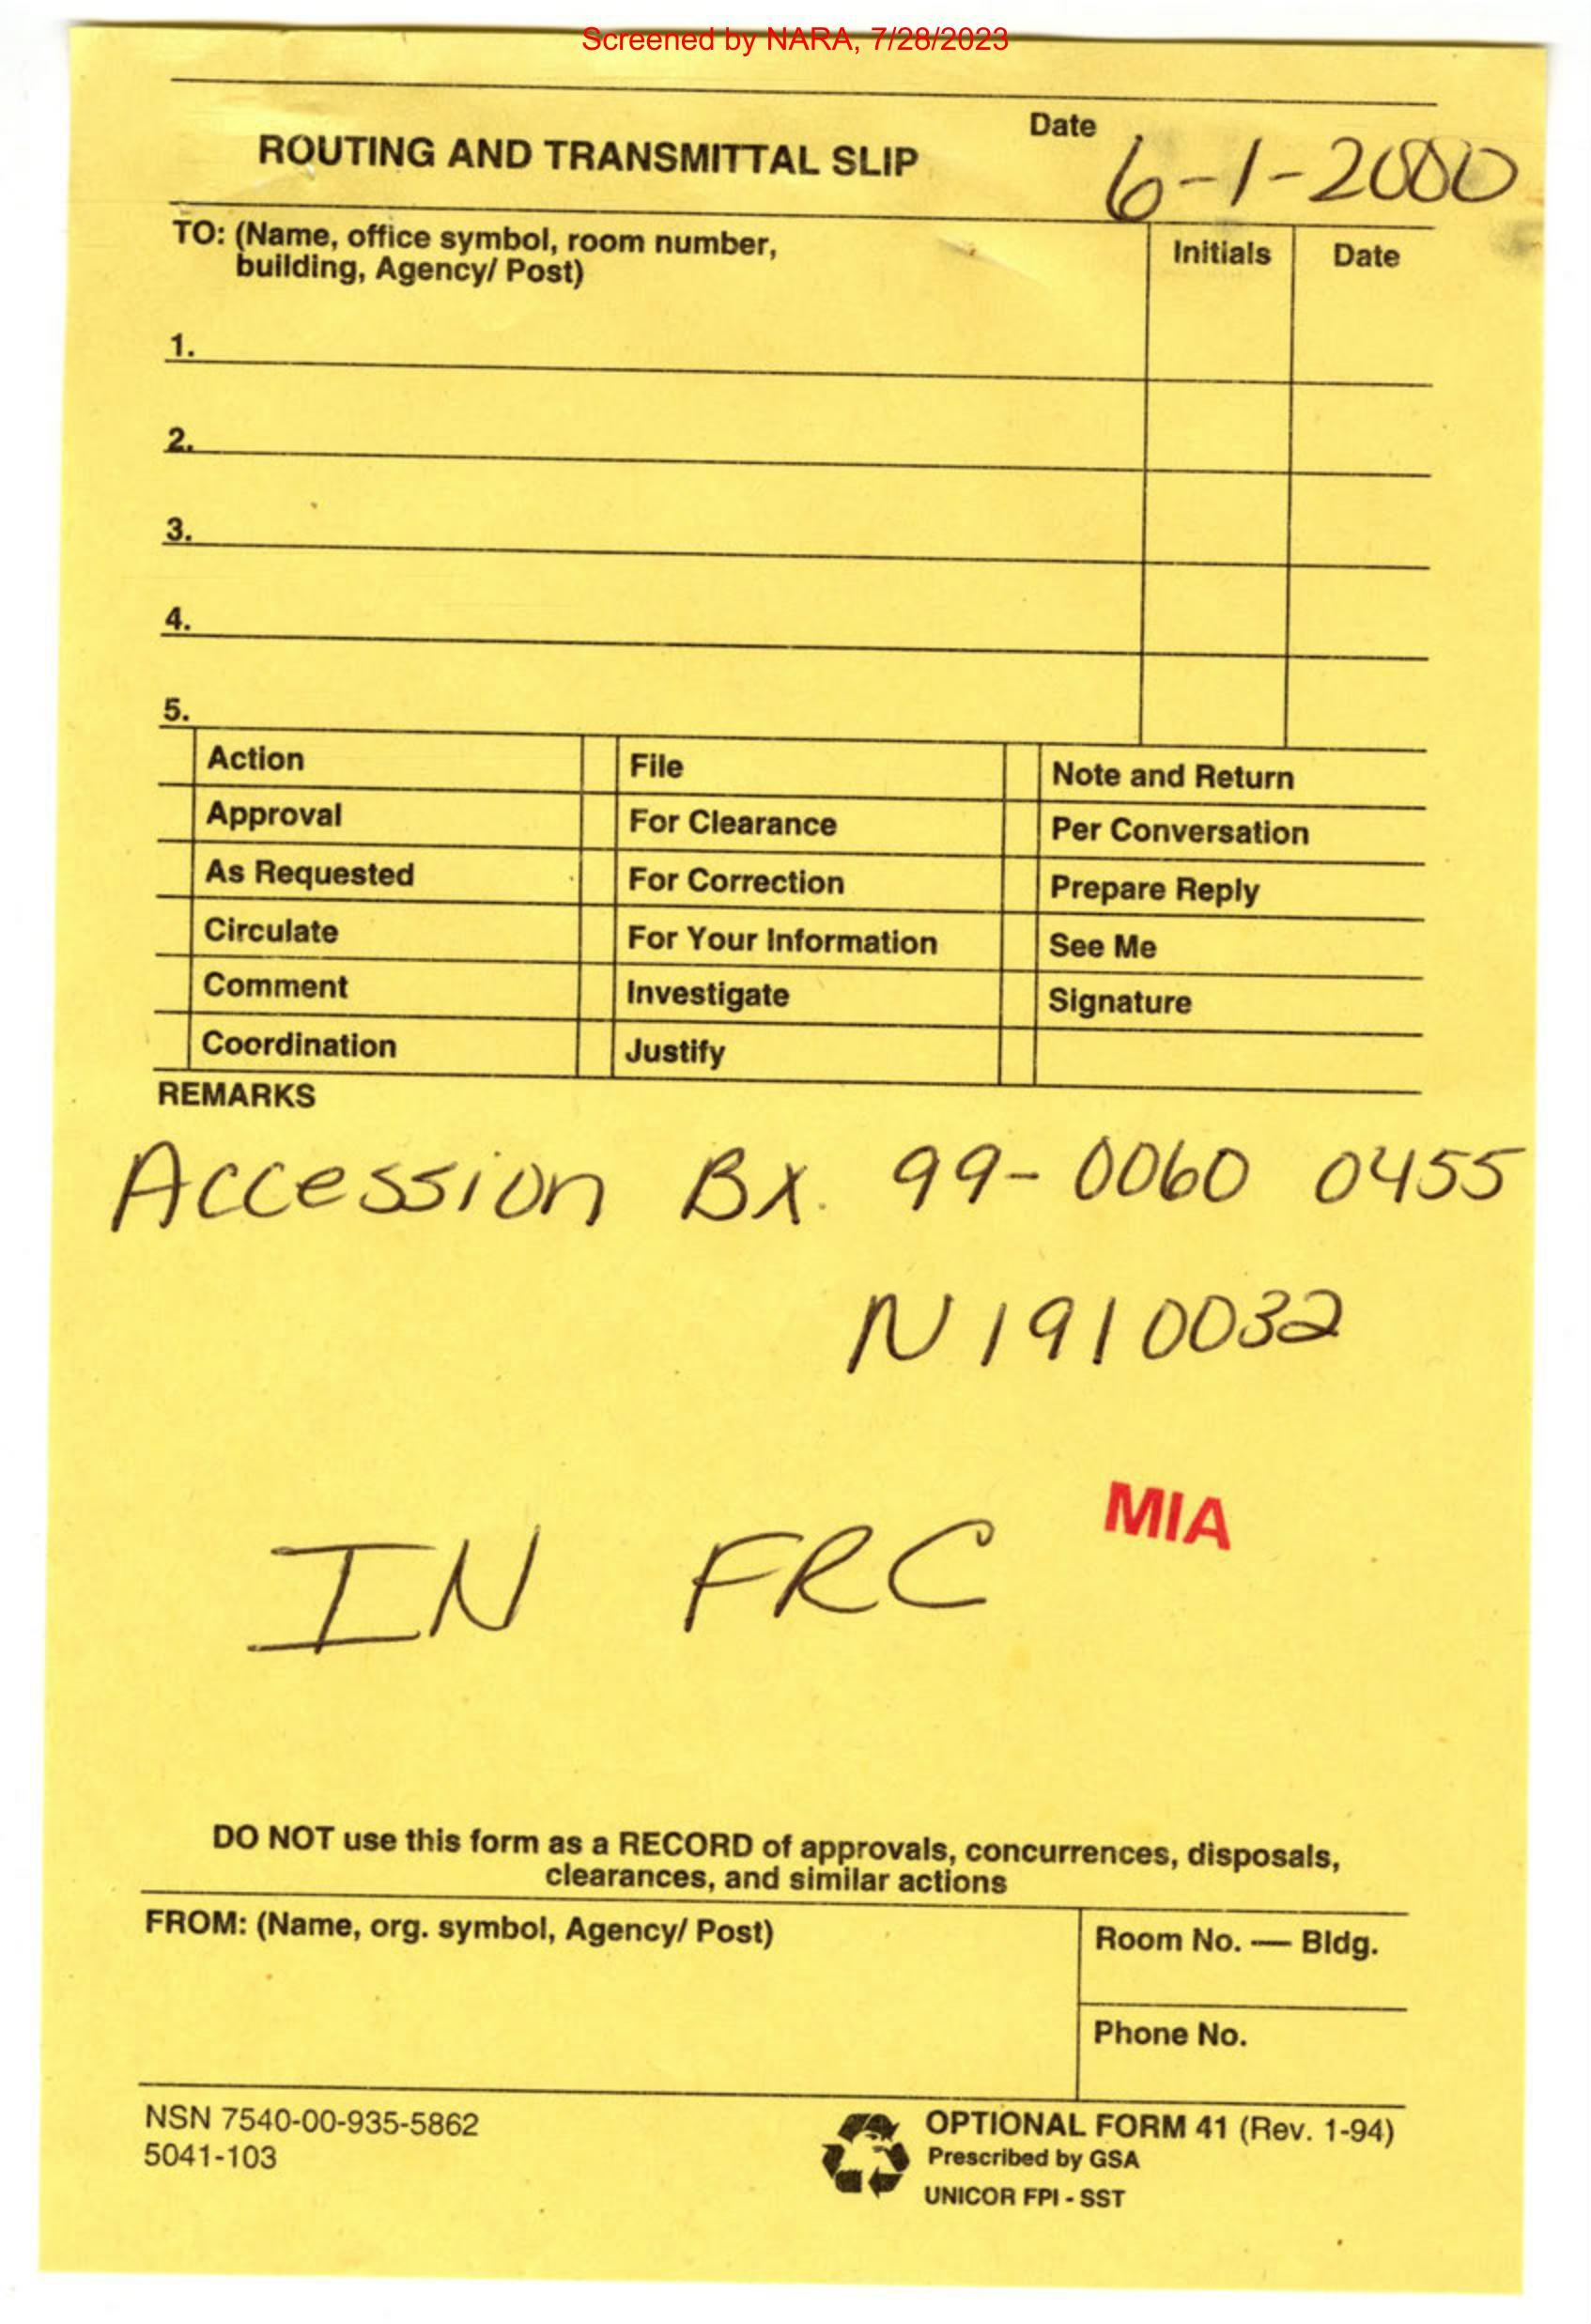 Screened by NARA, 7/28/2023
ROUTING AND TRANSMITTAL SLIP
Date
6-1-2000
TO: (Name, office symbol, room number,
building, Agency/ Post)
Initials
Date
1.
2.
3.
4.
5.
Action
File
Note and Return
Approval
For Clearance
Per Conversation
As Requested
For Correction
Prepare Reply
Circulate
For Your Information
See Me
Comment
Investigate
Signature
Coordination
Justify
REMARKS
Accession Bx. 99-0060 0455
N1910032
MIA
IN FRC
DO NOT use this form as a RECORD of approvals, concurrences, disposals,
clearances, and similar actions
FROM: (Name, org. symbol, Agency/ Post)
Room No. — Bldg.
Phone No.
NSN 7540-00-935-5862
5041-103
OPTIONAL FORM 41 (Rev. 1-94)
Prescribed by GSA
UNICOR FPI - SST